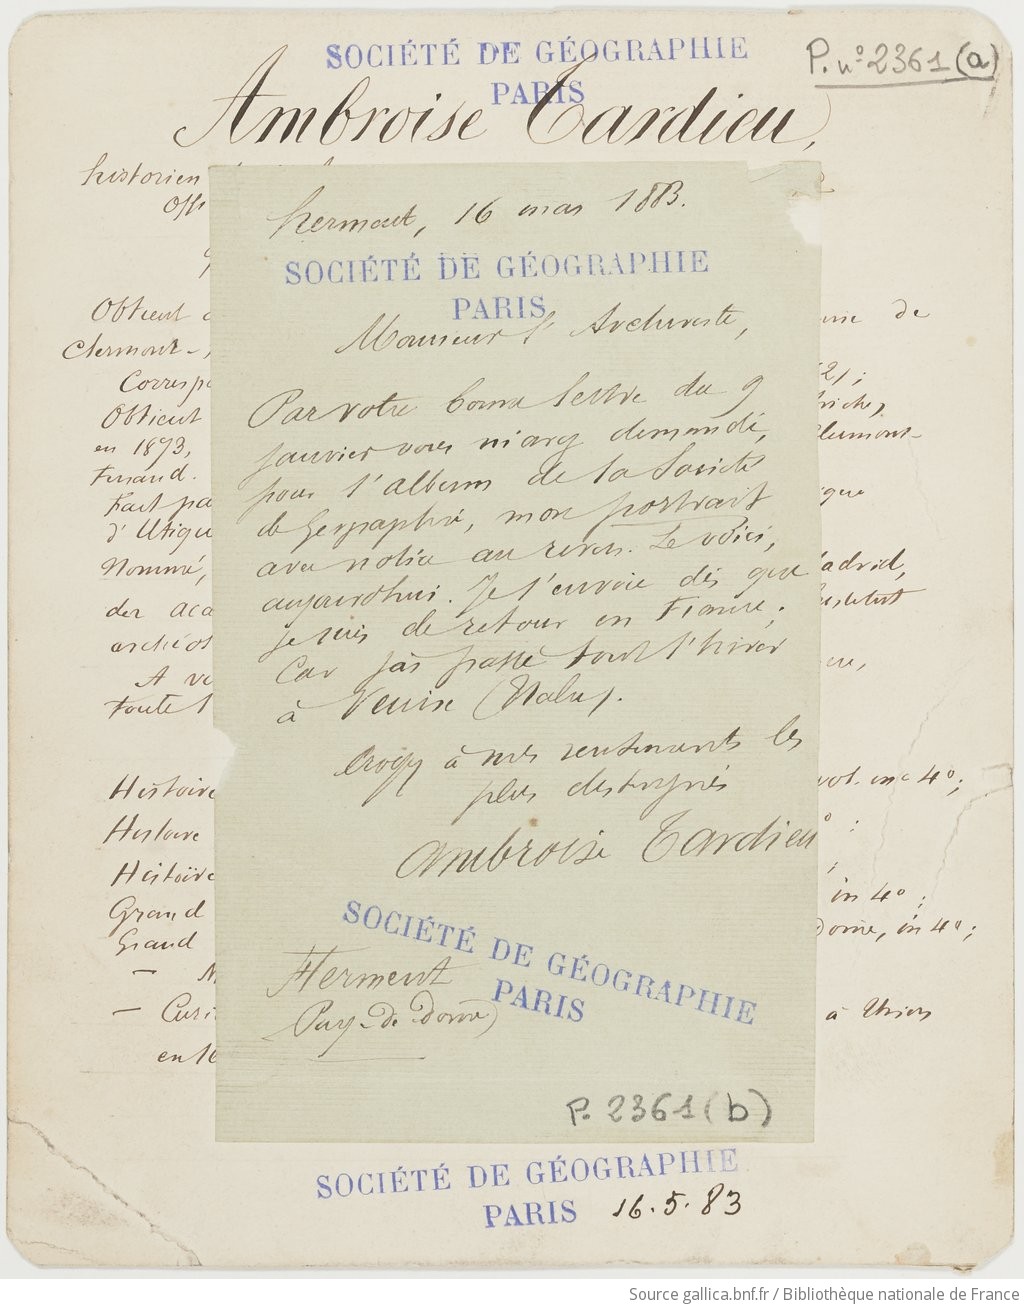 SOCIÉTÉ DE GÉOGRAPHIE
PARIS
P. n° 2361 (a)
Ambroise Tardieu,
historien
Offi
Obtient
Clermont-
Corresp
Obtient
en 1873,
Fernand.
Fait pa
d'Utique
Nommé,
der aca
archéol
A vo
toute l
Histoire
Histoire
Histoire
Grand
Grand
— Curi
en 16
de
21;
riche,
Clermont-
ique
Madrid,
Institut
vol. in-4°;
in 4°;
Dome, in 4°;
à Thiers
herment, 16 mai 1883.
SOCIÉTÉ DE GÉOGRAPHIE
PARIS
Monsieur l'Archiviste,
Par votre bonne lettre du 9
janvier vous m'avez demandé,
pour l'album de la Société
de Geographie, mon portrait
avec notice au revers. Le voici,
aujourd'hui. Je l'envoie dès que
je suis de retour en France;
Car j'ai passé tout l'hiver
à Venise (Italie).
Croyez à mes sentiments les
plus distingués
Ambroise Tardieu
SOCIÉTÉ DE GÉOGRAPHIE
PARIS
Herment
(Puy-de-Dome)
P. 2361 (b)
SOCIÉTÉ DE GÉOGRAPHIE
PARIS 16.5.83
Source gallica.bnf.fr / Bibliothèque nationale de France